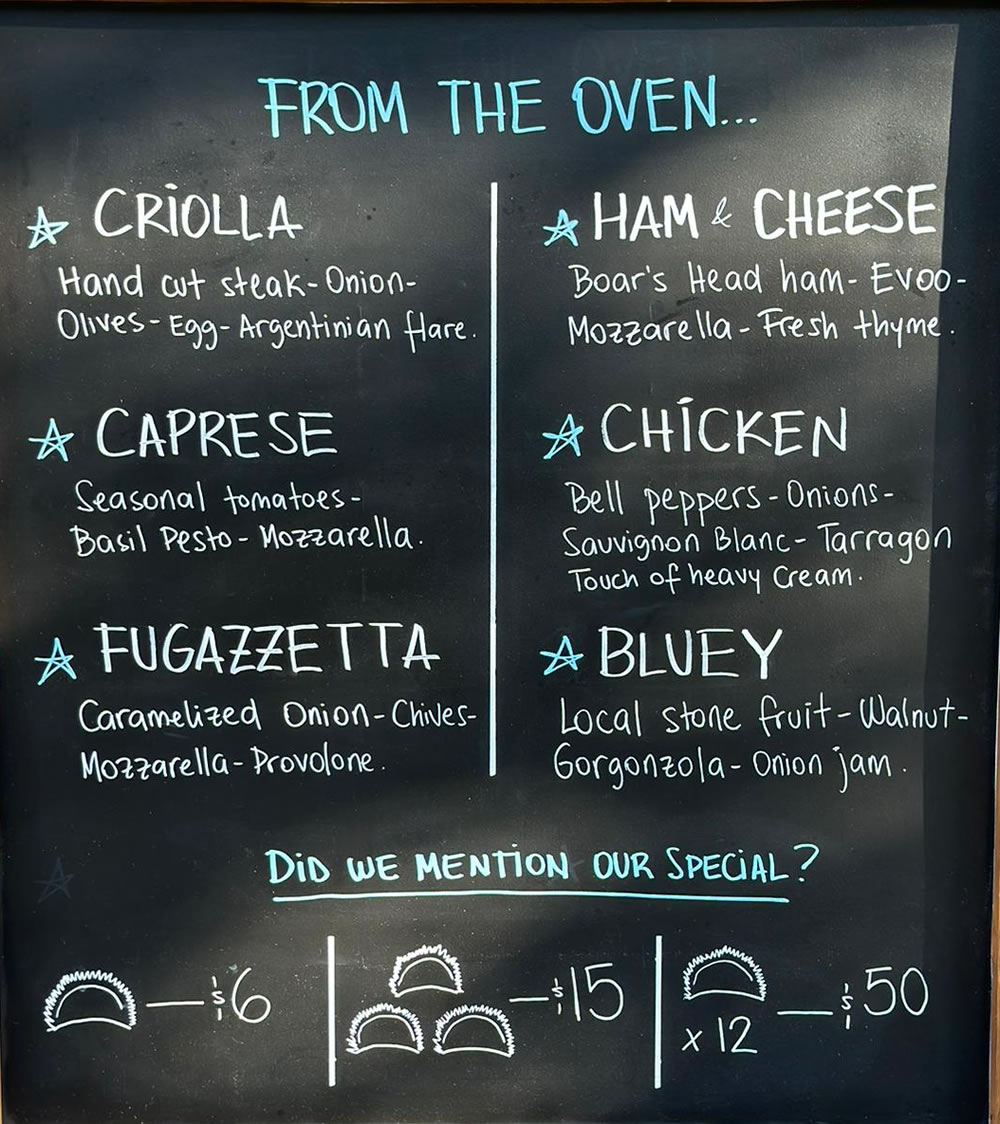 FROM THE OVEN...
CRIOLLA
Hand cut steak-Onion-
Olives-Egg-Argentinian flare.
CAPRESE
Seasonal tomatoes-
Basil Pesto-Mozzarella.
FUGAZZETTA
Caramelized Onion-Chives-
Mozzarella-Provolone.
HAM & CHEESE
Boar's Head ham-Evoo-
Mozzarella-Fresh thyme.
CHICKEN
Bell peppers-Onions-
Sauvignon Blanc-Tarragon
Touch of heavy cream.
BLUEY
Local stone fruit-Walnut-
Gorgonzola-Onion jam.
DID WE MENTION OUR SPECIAL?
—$6
—$15
x 12 —$50